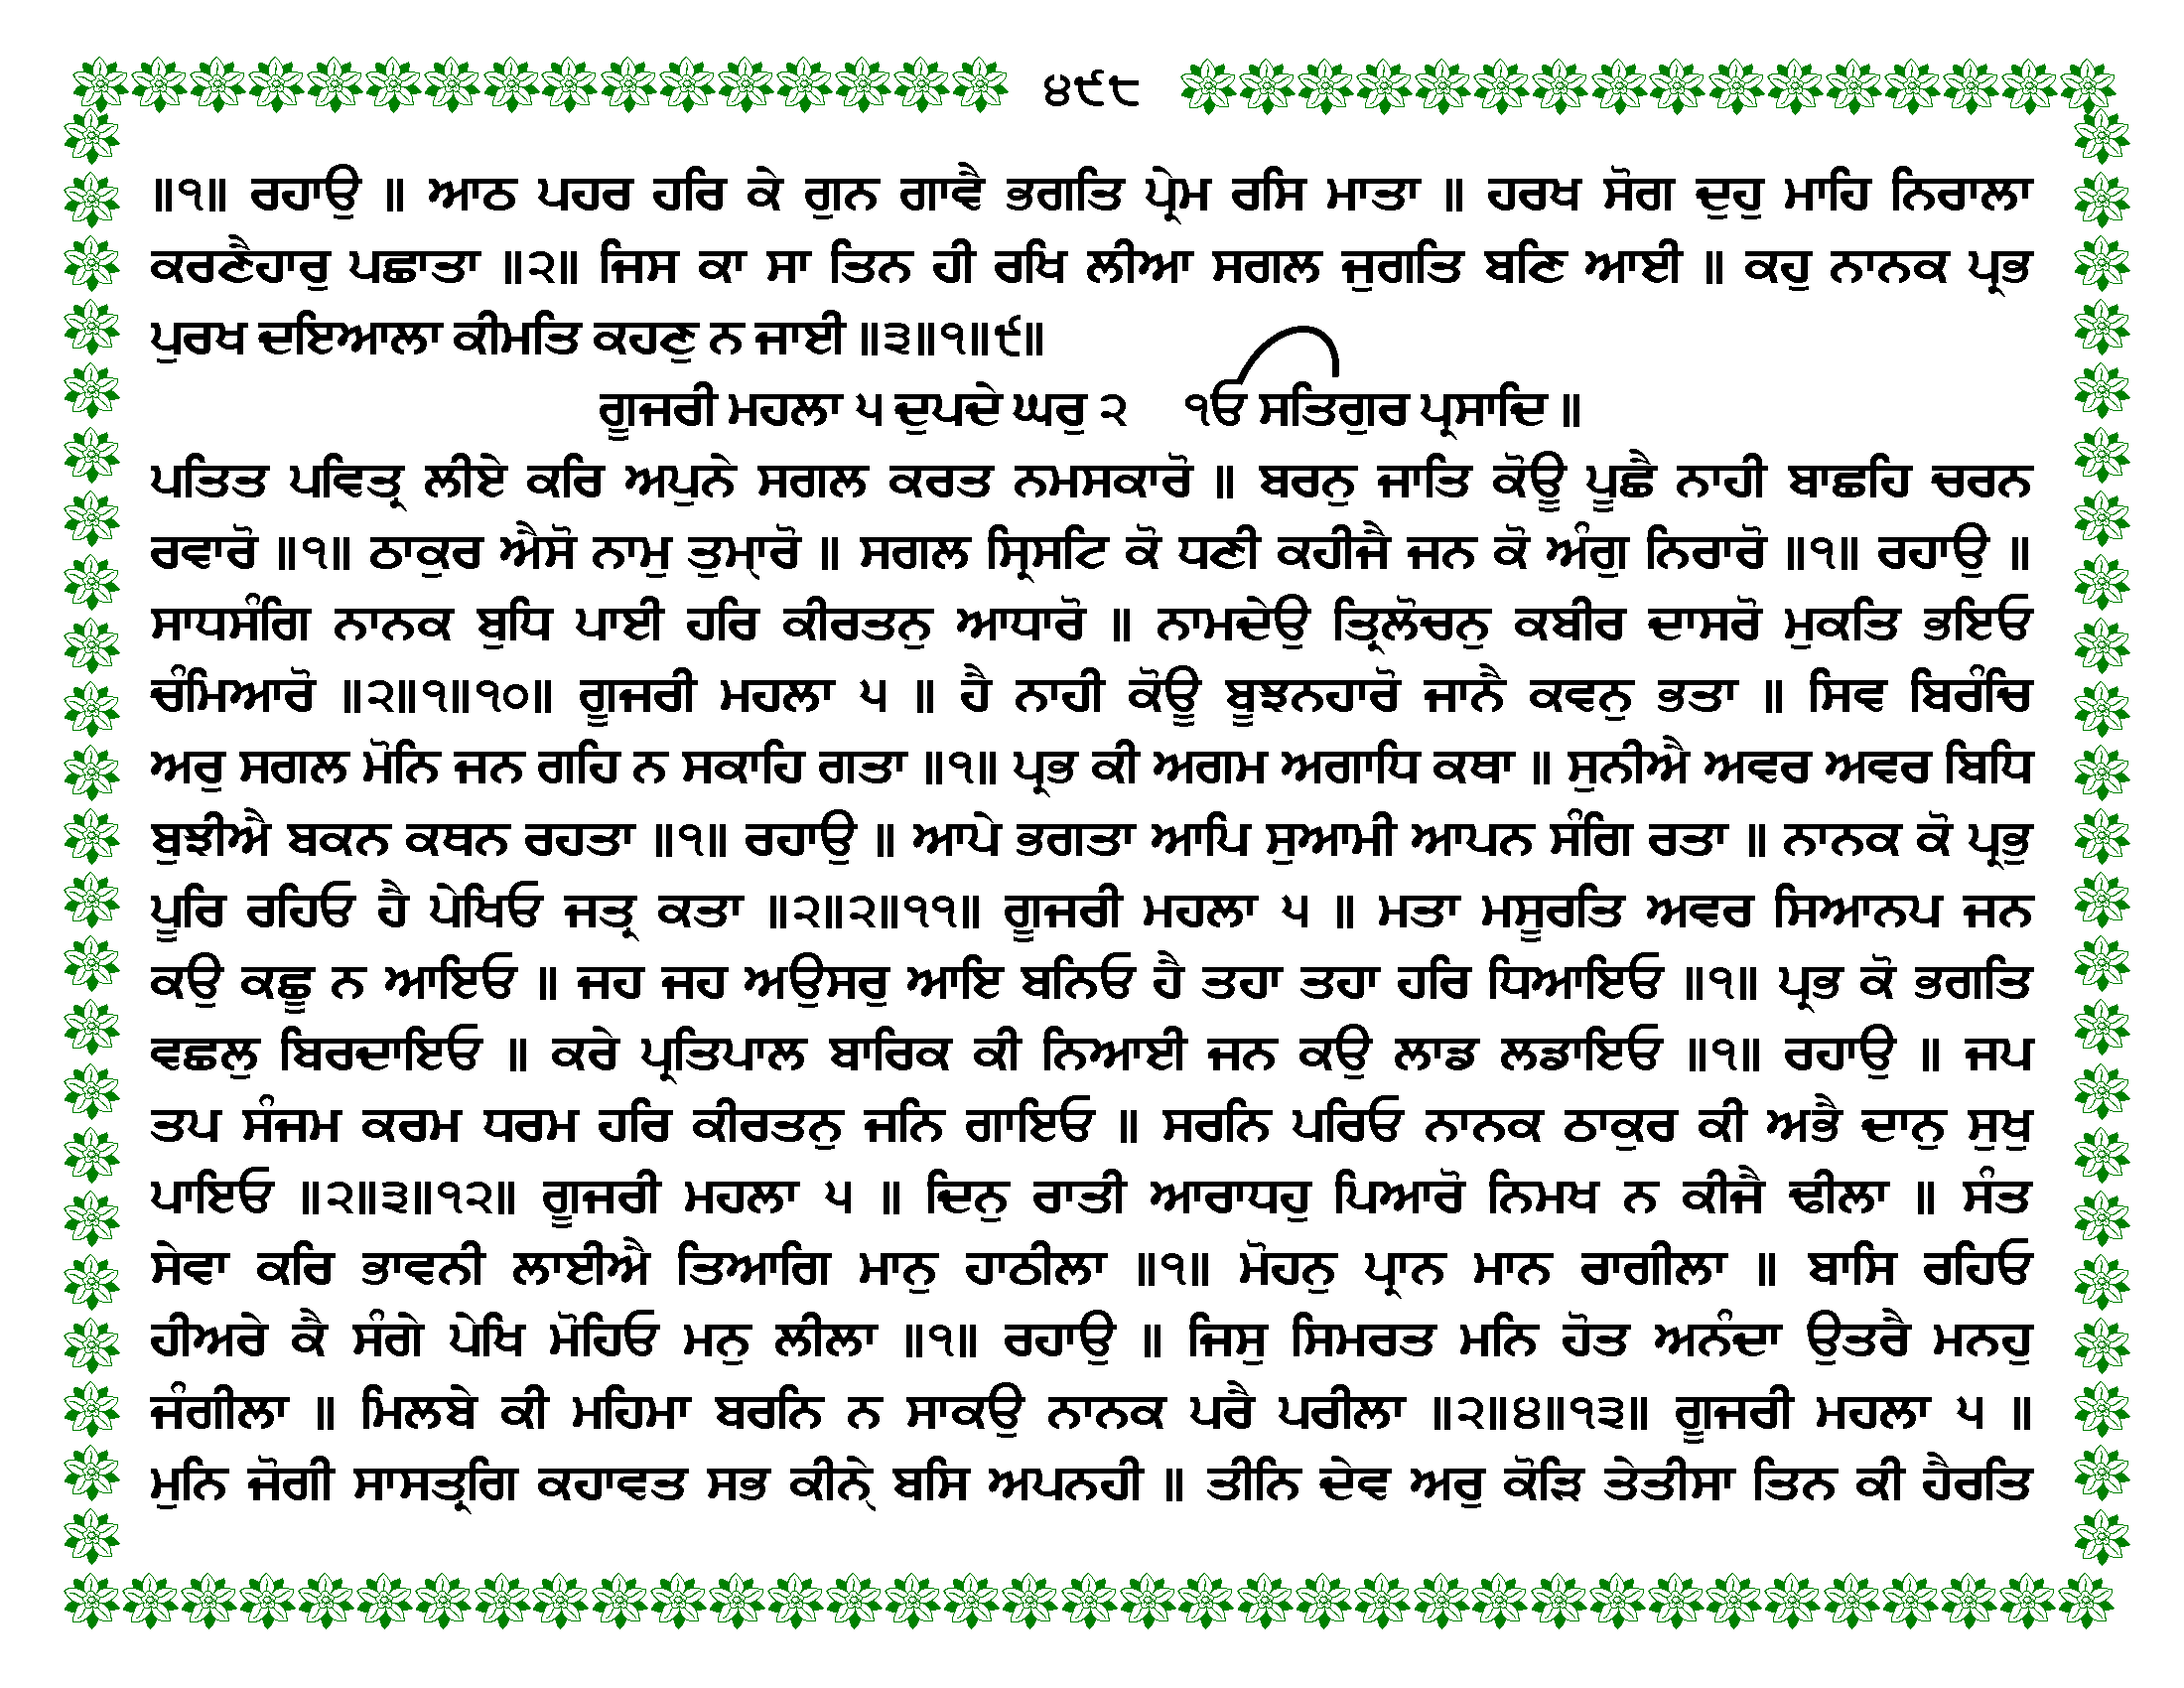 ੪੯੮
॥੧॥ ਰਹਾਉ ॥ ਆਠ ਪਹਰ ਹਰਿ ਕੇ ਗੁਨ ਗਾਵੈ ਭਗਤਿ ਪ੍ਰੇਮ ਰਸਿ ਮਾਤਾ ॥ ਹਰਖ ਸੋਗ ਦੁਹੁ ਮਾਹਿ ਨਿਰਾਲਾ
ਕਰਣੈਹਾਰੁ ਪਛਾਤਾ ॥੨॥ ਜਿਸ ਕਾ ਸਾ ਤਿਨ ਹੀ ਰਖਿ ਲੀਆ ਸਗਲ ਜੁਗਤਿ ਬਣਿ ਆਈ ॥ ਕਹੁ ਨਾਨਕ ਪ੍ਰਭ
ਪੁਰਖ ਦਇਆਲਾ ਕੀਮਤਿ ਕਹਣੁ ਨ ਜਾਈ ॥੩॥੧॥੯॥
ਗੂਜਰੀ ਮਹਲਾ ੫ ਦੁਪਦੇ ਘਰੁ ੨ ੴ ਸਤਿਗੁਰ ਪ੍ਰਸਾਦਿ ॥
ਪਤਿਤ ਪਵਿਤ੍ਰ ਲੀਏ ਕਰਿ ਅਪੁਨੇ ਸਗਲ ਕਰਤ ਨਮਸਕਾਰੋ ॥ ਬਰਨੁ ਜਾਤਿ ਕੋਊ ਪੂਛੈ ਨਾਹੀ ਬਾਛਹਿ ਚਰਨ
ਰਵਾਰੋ ॥੧॥ ਠਾਕੁਰ ਐਸੋ ਨਾਮੁ ਤੁਮ੍ਹਾਰੋ ॥ ਸਗਲ ਸ੍ਰਿਸਟਿ ਕੋ ਧਣੀ ਕਹੀਜੈ ਜਨ ਕੋ ਅੰਗੁ ਨਿਰਾਰੋ ॥੧॥ ਰਹਾਉ ॥
ਸਾਧਸੰਗਿ ਨਾਨਕ ਬੁਧਿ ਪਾਈ ਹਰਿ ਕੀਰਤਨੁ ਆਧਾਰੋ ॥ ਨਾਮਦੇਉ ਤ੍ਰਿਲੋਚਨੁ ਕਬੀਰ ਦਾਸਰੋ ਮੁਕਤਿ ਭਇਓ
ਚੰਮਿਆਰੋ ॥੨॥੧॥੧੦॥ ਗੂਜਰੀ ਮਹਲਾ ੫ ॥ ਹੈ ਨਾਹੀ ਕੋਊ ਬੂਝਨਹਾਰੋ ਜਾਨੈ ਕਵਨੁ ਭਤਾ ॥ ਸਿਵ ਬਿਰੰਚਿ
ਅਰੁ ਸਗਲ ਮੋਨਿ ਜਨ ਗਹਿ ਨ ਸਕਾਹਿ ਗਤਾ ॥੧॥ ਪ੍ਰਭ ਕੀ ਅਗਮ ਅਗਾਧਿ ਕਥਾ ॥ ਸੁਨੀਐ ਅਵਰ ਅਵਰ ਬਿਧਿ
ਬੁਝੀਐ ਬਕਨ ਕਥਨ ਰਹਤਾ ॥੧॥ ਰਹਾਉ ॥ ਆਪੇ ਭਗਤਾ ਆਪਿ ਸੁਆਮੀ ਆਪਨ ਸੰਗਿ ਰਤਾ ॥ ਨਾਨਕ ਕੋ ਪ੍ਰਭੁ
ਪੂਰਿ ਰਹਿਓ ਹੈ ਪੇਖਿਓ ਜਤ੍ਰ ਕਤਾ ॥੨॥੨॥੧੧॥ ਗੂਜਰੀ ਮਹਲਾ ੫ ॥ ਮਤਾ ਮਸੂਰਤਿ ਅਵਰ ਸਿਆਨਪ ਜਨ
ਕਉ ਕਛੂ ਨ ਆਇਓ ॥ ਜਹ ਜਹ ਅਉਸਰੁ ਆਇ ਬਨਿਓ ਹੈ ਤਹਾ ਤਹਾ ਹਰਿ ਧਿਆਇਓ ॥੧॥ ਪ੍ਰਭ ਕੋ ਭਗਤਿ
ਵਛਲੁ ਬਿਰਦਾਇਓ ॥ ਕਰੇ ਪ੍ਰਤਿਪਾਲ ਬਾਰਿਕ ਕੀ ਨਿਆਈ ਜਨ ਕਉ ਲਾਡ ਲਡਾਇਓ ॥੧॥ ਰਹਾਉ ॥ ਜਪ
ਤਪ ਸੰਜਮ ਕਰਮ ਧਰਮ ਹਰਿ ਕੀਰਤਨੁ ਜਨਿ ਗਾਇਓ ॥ ਸਰਨਿ ਪਰਿਓ ਨਾਨਕ ਠਾਕੁਰ ਕੀ ਅਭੈ ਦਾਨੁ ਸੁਖੁ
ਪਾਇਓ ॥੨॥੩॥੧੨॥ ਗੂਜਰੀ ਮਹਲਾ ੫ ॥ ਦਿਨੁ ਰਾਤੀ ਆਰਾਧਹੁ ਪਿਆਰੋ ਨਿਮਖ ਨ ਕੀਜੈ ਢੀਲਾ ॥ ਸੰਤ
ਸੇਵਾ ਕਰਿ ਭਾਵਨੀ ਲਾਈਐ ਤਿਆਗਿ ਮਾਨੁ ਹਾਠੀਲਾ ॥੧॥ ਮੋਹਨੁ ਪ੍ਰਾਨ ਮਾਨ ਰਾਗੀਲਾ ॥ ਬਾਸਿ ਰਹਿਓ
ਹੀਅਰੇ ਕੈ ਸੰਗੇ ਪੇਖਿ ਮੋਹਿਓ ਮਨੁ ਲੀਲਾ ॥੧॥ ਰਹਾਉ ॥ ਜਿਸੁ ਸਿਮਰਤ ਮਨਿ ਹੋਤ ਅਨੰਦਾ ਉਤਰੈ ਮਨਹੁ
ਜੰਗੀਲਾ ॥ ਮਿਲਬੇ ਕੀ ਮਹਿਮਾ ਬਰਨਿ ਨ ਸਾਕਉ ਨਾਨਕ ਪਰੈ ਪਰੀਲਾ ॥੨॥੪॥੧੩॥ ਗੂਜਰੀ ਮਹਲਾ ੫ ॥
ਮੁਨਿ ਜੋਗੀ ਸਾਸਤ੍ਰਗਿ ਕਹਾਵਤ ਸਭ ਕੀਨ੍ਹੇ ਬਸਿ ਅਪਨਹੀ ॥ ਤੀਨਿ ਦੇਵ ਅਰੁ ਕੋੜਿ ਤੇਤੀਸਾ ਤਿਨ ਕੀ ਹੈਰਤਿ